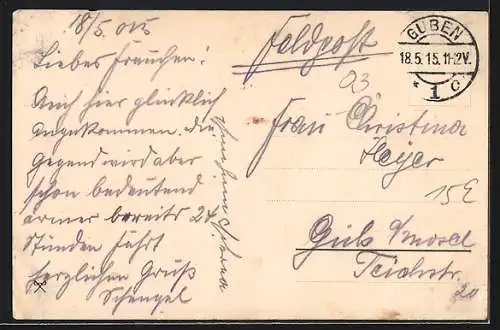 18/5. 015
Liebes Frauchen!
Auch hier glücklich
angekommen. Die
Gegend wird aber
schon bedeutend
ärmer bereits 24
Stunden Fahrt
herzlichen Gruß
Schengel
Feldpost
GUBEN
18.5.15.11-12V.
* 1 c
Frau Christina
Heyer
Güls Mosel
Teichstr.
93
15E
20